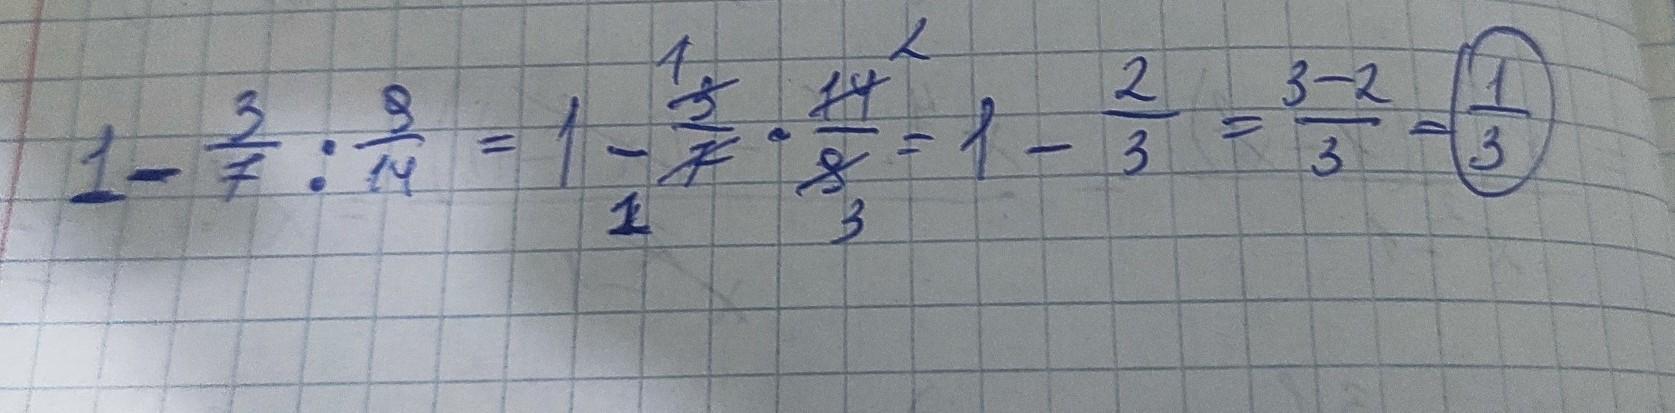 1 - 3/7 : 9/14 = 1 - 3/7 · 14/9 = 1 - 2/3 = 3-2/3 = 1/3
1 2
1 3